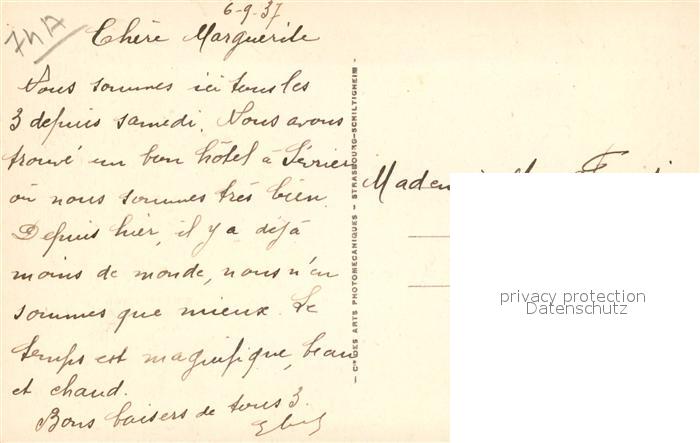 6-9-37
74A
Chère Marguerite
Nous sommes ici tous les
3 depuis samedi. Nous avons
trouvé un bon hôtel à Sévrier
où nous sommes très bien.
Depuis hier, il y a déjà
moins de monde, nous n'en
sommes que mieux. Le
temps est magnifique, beau
et chaud.
Bons baisers de tous 3.
— Cie DES ARTS PHOTOMECANIQUES — STRASBOURG-SCHILTIGHEIM —
privacy protection
Datenschutz